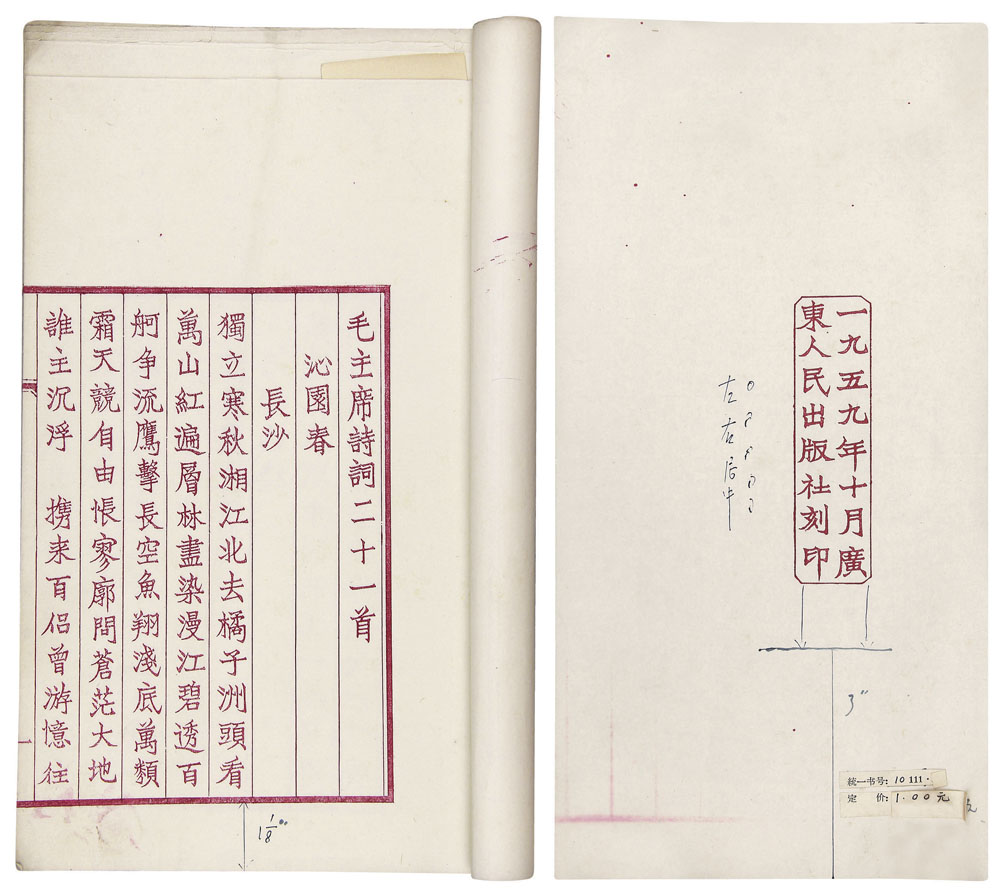 毛主席詩詞二十一首
沁園春
長沙
獨立寒秋湘江北去橘子洲頭看
萬山紅遍層林盡染漫江碧透百
舸争流鷹擊長空魚翔淺底萬類
霜天競自由悵寥廓問蒼茫大地
誰主沉浮　携来百侣曾游憶往
一
1 1/8"
一九五九年十月廣
東人民出版社刻印
左右居中
3"
統一书号: 10111·
定　价: 1.00 元